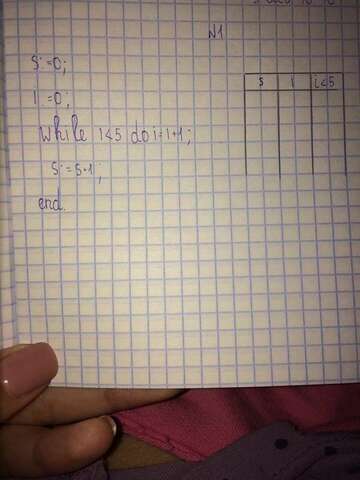 N1
S:=0;
i:=0;
while i<5 do i=i+1;
S:=s+1;
end.
S i i<5